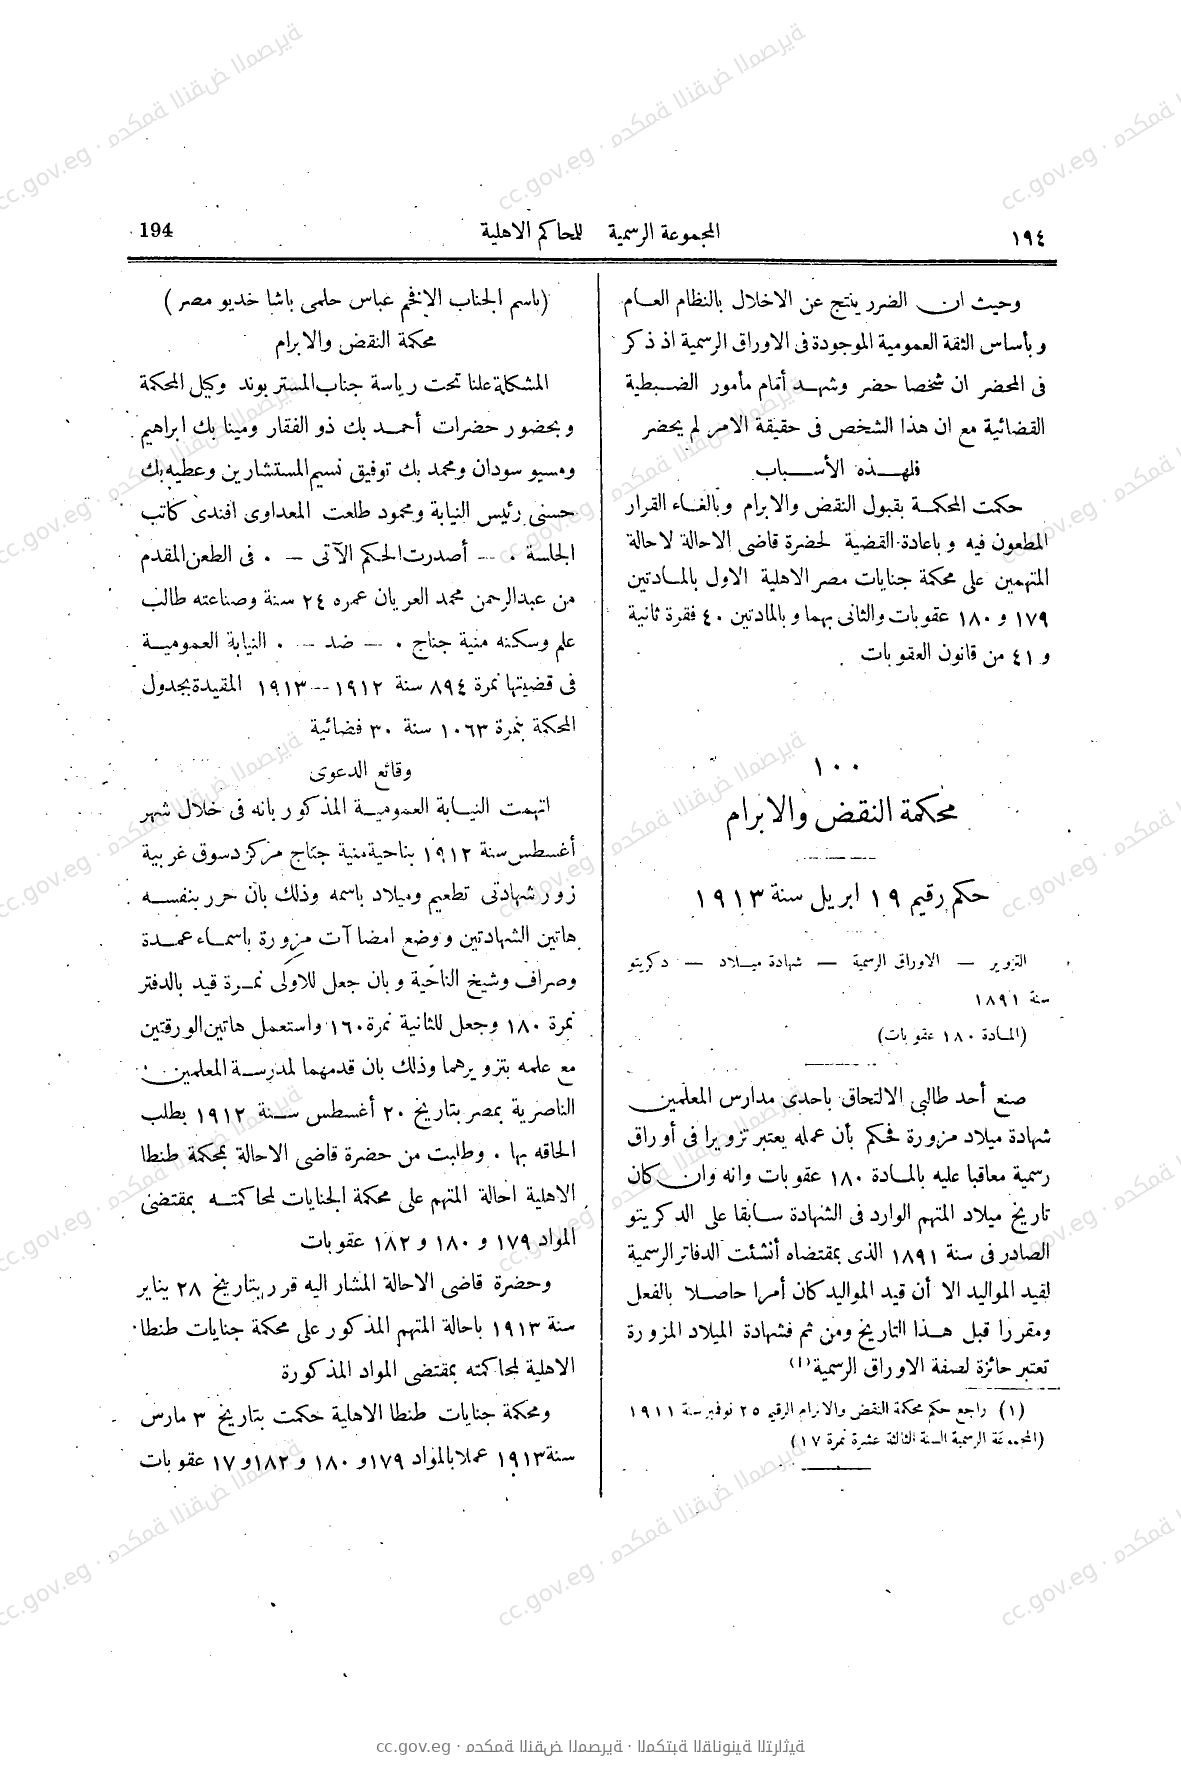 ١٩٤ المجموعة الرسمية للمحاكم الاهلية 194
وحيث ان الضرر ينتج عن الاخلال بالنظام العام
وبأساس الثقة العمومية الموجودة فى الاوراق الرسمية اذ ذكر
فى المحضر ان شخصا حضر وشهد أمام مأمور الضبطية
القضائية مع ان هذا الشخص فى حقيقة الامر لم يحضر
فلهذه الأسباب
حكمت المحكمة بقبول النقض والابرام وبالغاء القرار
المطعون فيه وباعادة القضية لحضرة قاضى الاحالة لاحالة
المتهمين على محكمة جنايات مصر الاهلية الاول بالمادتين
١٧٩ و ١٨٠ عقوبات والثانى بهما وبالمادتين ٤٠ فقرة ثانية
و ٤١ من قانون العقوبات .
١٠٠
محكمة النقض والابرام
حكم رقيم ١٩ ابريل سنة ١٩١٣
التزوير — الاوراق الرسمية — شهادة ميلاد — دكريتو
سنة ١٨٩١
(المادة ١٨٠ عقوبات)
صنع أحد طالبى الالتحاق باحدى مدارس المعلمين
شهادة ميلاد مزورة فحكم بأن عمله يعتبر تزويرا فى أوراق
رسمية معاقبا عليه بالمادة ١٨٠ عقوبات وانه وان كان
تاريخ ميلاد المتهم الوارد فى الشهادة سابقا على الدكريتو
الصادر فى سنة ١٨٩١ الذى بمقتضاه أنشئت الدفاتر الرسمية
لقيد المواليد الا أن قيد المواليد كان أمرا حاصلا بالفعل
ومقررا قبل هذا التاريخ ومن ثم فشهادة الميلاد المزورة
تعتبر حائزة لصفة الاوراق الرسمية (١)
(١) راجع حكم محكمة النقض والابرام الرقيم ٢٥ نوفمبر سنة ١٩١١
(المجموعة الرسمية السنة الثالثة عشرة نمرة ١٧)
(باسم الجناب الافخم عباس حلمى باشا خديو مصر)
محكمة النقض والابرام
المشكلة علنا تحت رياسة جناب المستر بوند وكيل المحكمة
وبحضور حضرات أحمد بك ذو الفقار ومينا بك ابراهيم
ومسيو سودان ومحمد بك توفيق نسيم المستشارين وعطيه بك
حسنى رئيس النيابة ومحمود طلعت المعداوى افندى كاتب
الجلسة . — أصدرت الحكم الآتى — . فى الطعن المقدم
من عبدالرحمن محمد العريان عمره ٢٤ سنة وصناعته طالب
علم وسكنه منية جناج . — ضد — . النيابة العمومية
فى قضيتها نمرة ٨٩٤ سنة ١٩١٢ — ١٩١٣ المقيدة بجدول
المحكمة بنمرة ١٠٦٣ سنة ٣٠ قضائية
وقائع الدعوى
اتهمت النيابة العمومية المذكور بانه فى خلال شهر
أغسطس سنة ١٩١٢ بناحية منية جناج مركز دسوق غربية
زور شهادتى تطعيم وميلاد باسمه وذلك بان حرر بنفسه
هاتين الشهادتين ووضع امضاآت مزورة باسماء عمدة
وصراف وشيخ الناحية وبان جعل للاولى نمرة قيد بالدفتر
نمرة ١٨٠ وجعل للثانية نمرة ١٦٠ واستعمل هاتين الورقتين
مع علمه بتزويرهما وذلك بان قدمهما لمدرسة المعلمين
الناصرية بمصر بتاريخ ٢٠ أغسطس سنة ١٩١٢ بطلب
الحاقه بها . وطلبت من حضرة قاضى الاحالة بمحكمة طنطا
الاهلية احالة المتهم على محكمة الجنايات لمحاكمته بمقتضى
المواد ١٧٩ و ١٨٠ و ١٨٢ عقوبات
وحضرة قاضى الاحالة المشار اليه قرر بتاريخ ٢٨ يناير
سنة ١٩١٣ باحالة المتهم المذكور على محكمة جنايات طنطا
الاهلية لمحاكمته بمقتضى المواد المذكورة
ومحكمة جنايات طنطا الاهلية حكمت بتاريخ ٣ مارس
سنة ١٩١٣ عملا بالمواد ١٧٩ و ١٨٠ و ١٨٢ و ١٧ عقوبات
cc.gov.eg · محكمة النقض المصرية · المكتبة القانونية التراثية